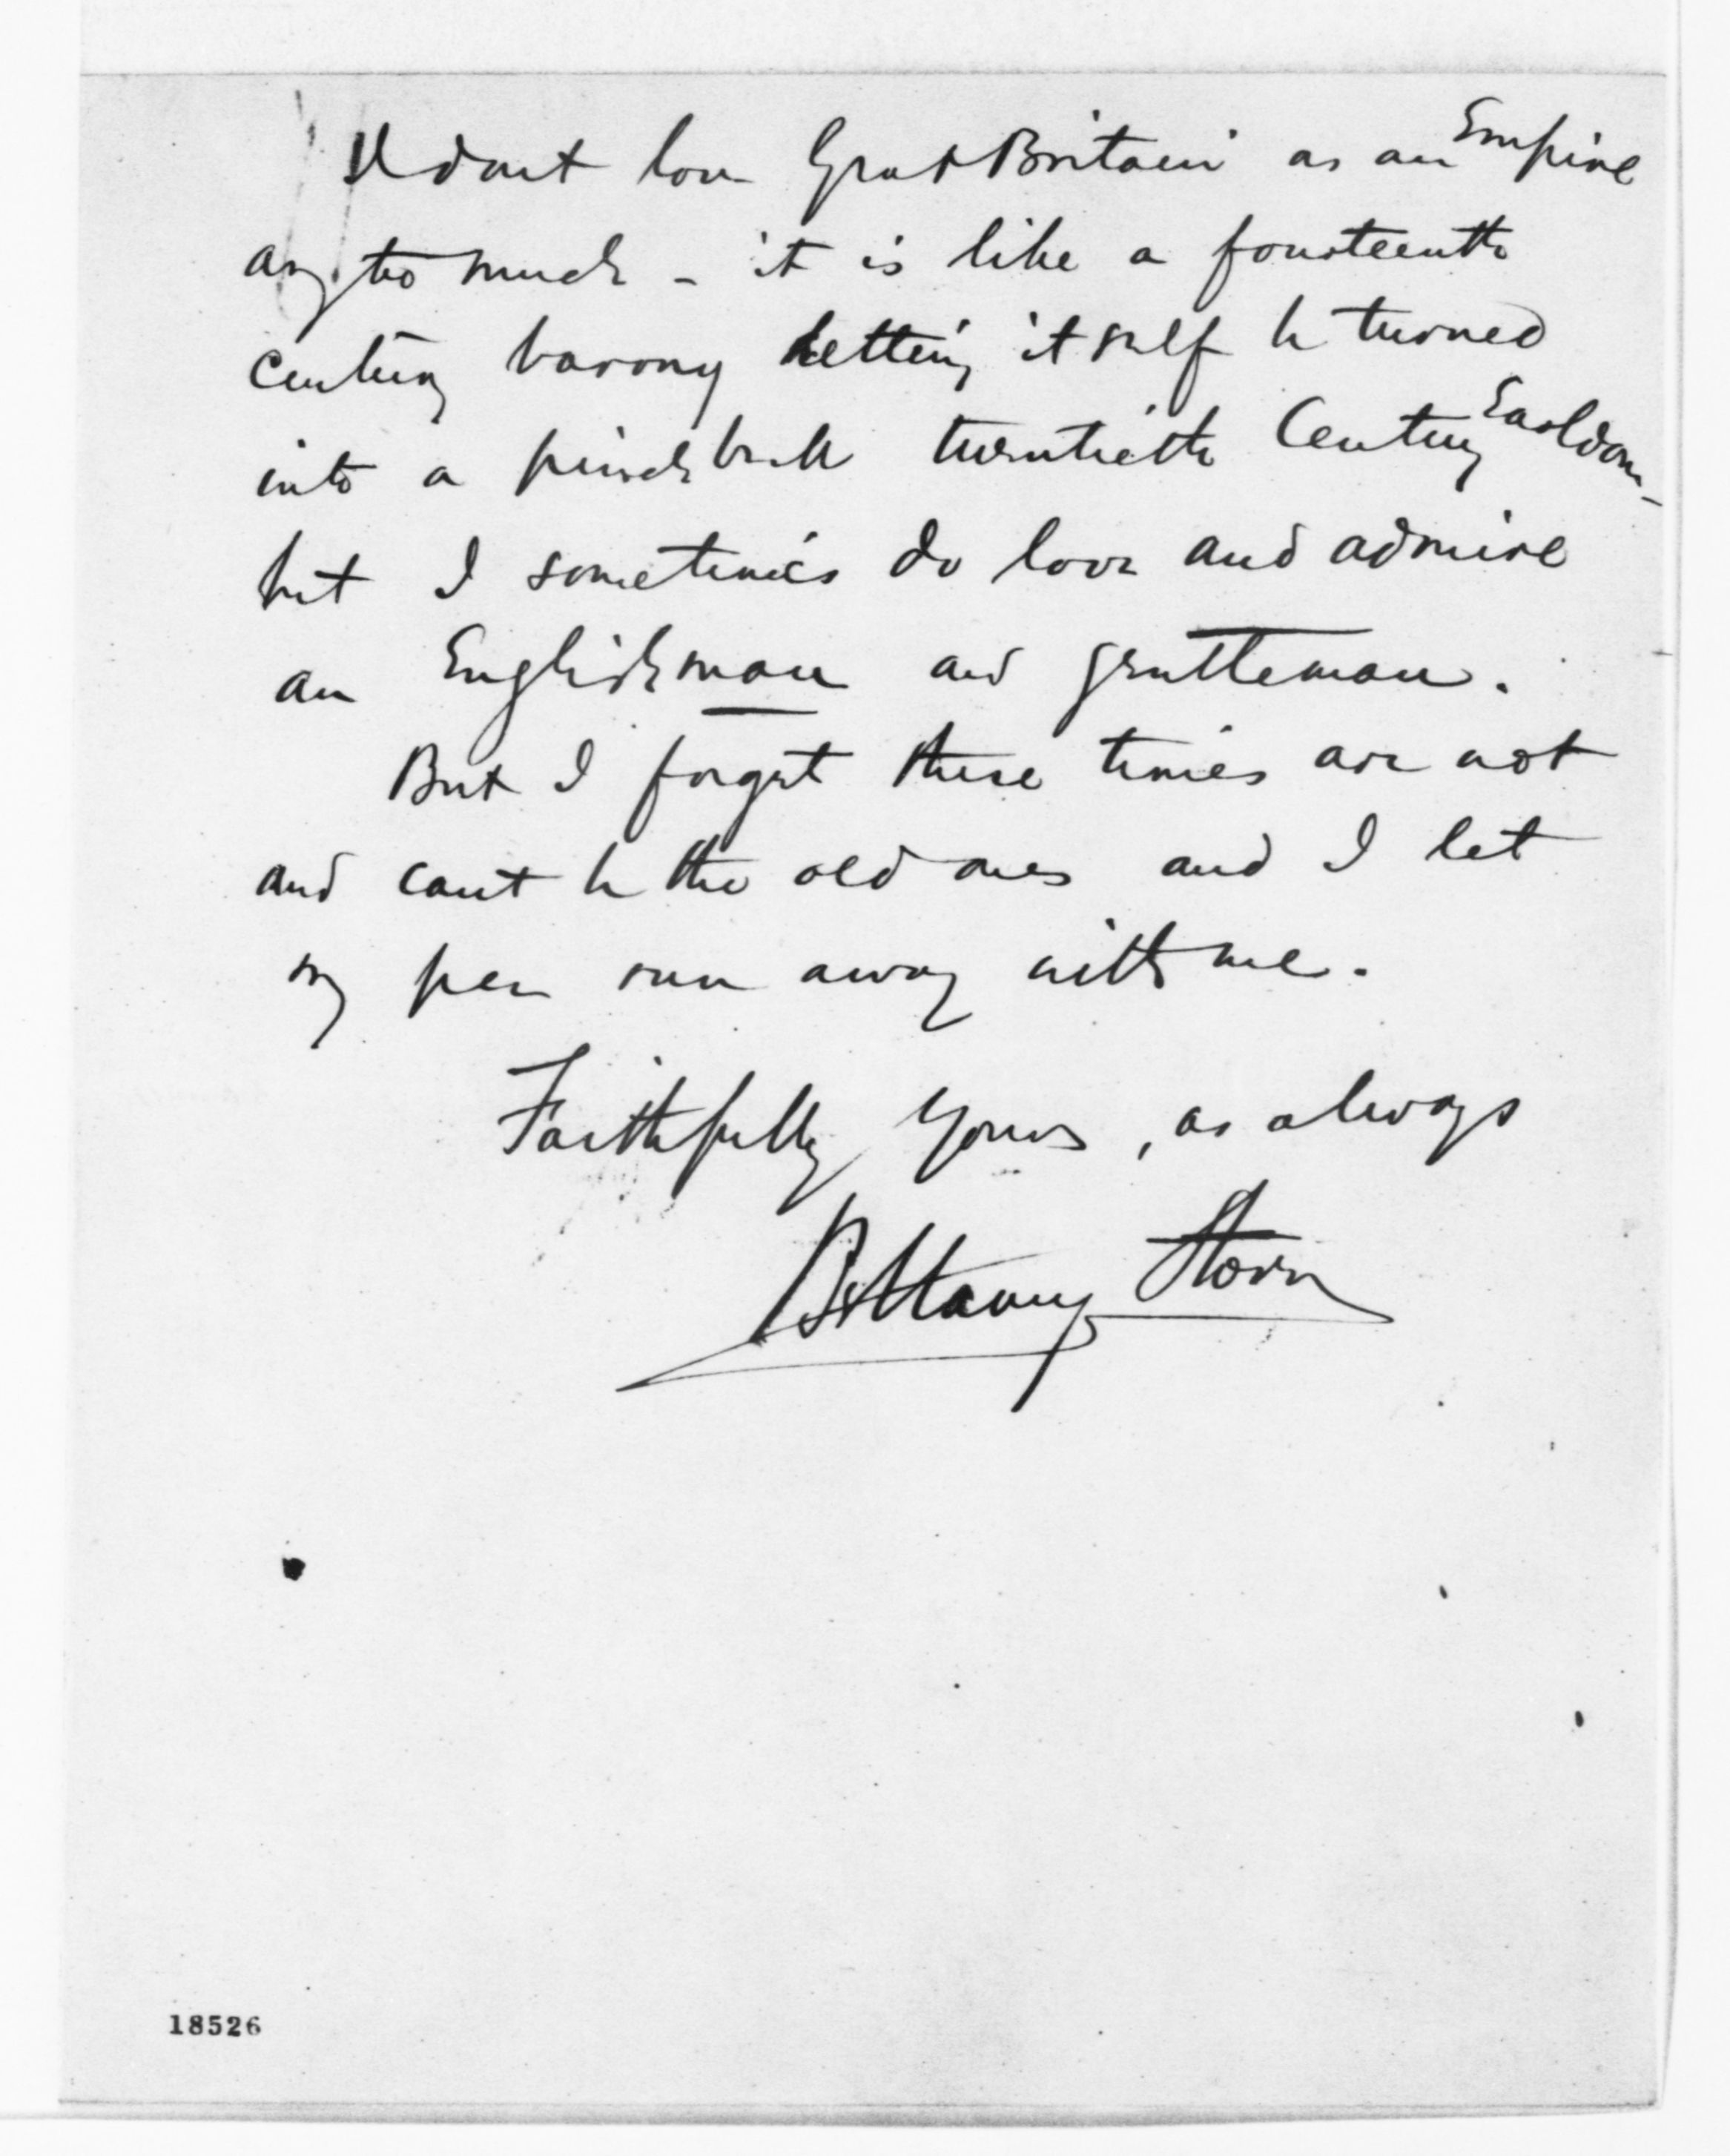 I dont love Great Britain as an Empire
any too much - it is like a fourteenth
century barony letting itself be turned
into a pinchbeck twentieth Century Earldom -
but I sometimes do love and admire
an Englishman and gentleman.
But I forget these times are not
and cant be the old ones and I let
my pen run away with me.
Faithfully Yours, as always
Bellamy Storer
18526